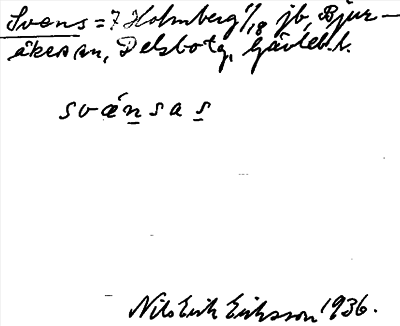 Svens = 7 Holmberg 1/18 jb, Bjur-
åkers sn, Delsbo tg, Gävleb. l.
svænsas
Nils Erik Eriksson 1936.